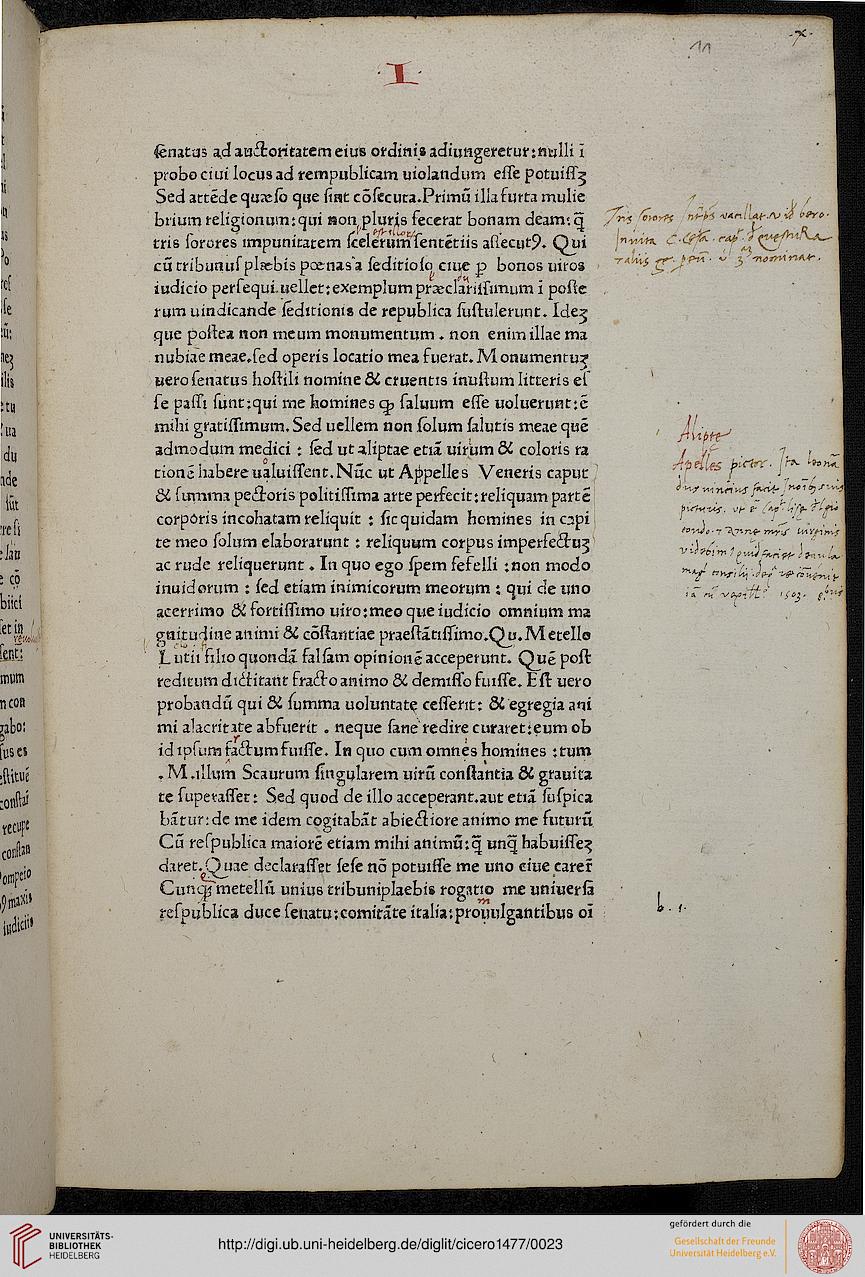 11
.x.
·I·
senatus ad auctoritatem eius ordinis adiungeretur:nulli ī
probo ciui locus ad rempublicam uiolandum esse potuissꝫ
Sed attēde quæso que sint cōsecuta.Primū illa furta mulie
brium religionum:qui non pluris fecerat bonam deam:q̄
tris sorores impunitatem scelerum sentētiis assecutꝰ. Qui
cū tribunus plæbis pœnas a seditioso ciue ꝑ bonos uiros
iudicio persequi uellet:exemplum præclarissimum ī poste
rum uindicande seditionis de republica sustulerunt. Ideꝫ
que postea non meum monumentum . non enim illae ma
nubiae meae.sed operis locatio mea fuerat. Monumentuꝫ
uero senatus hostili nomine & cruentis inustum litteris es
se passi sunt:qui me homines ꝙ saluum esse uoluerunt:ē
mihi gratissimum. Sed uellem non solum salutis meae quē
admodum medici : sed ut aliptae etiā uirium & coloris ra
tionē habere ualuissent. Nūc ut Appelles Veneris caput
& summa pectoris politissima arte perfecit:reliquam partē
corporis incohatam reliquit : sic quidam homines in capi
te meo solum elaborarunt : reliquum corpus imperfectuꝫ
ac rude reliquerunt . In quo ego spem fefelli :non modo
inuidorum : sed etiam inimicorum meorum : qui de uno
acerrimo & fortissimo uiro:meo que iudicio omnium ma
gnitudine animi & cōstantiae praestātissimo.Qu.Metello
Lutii filio quondā falsam opinionē acceperunt. Quē post
reditum dictitant fracto animo & demisso fuisse. Est uero
probandū qui & summa uoluntate cesserit: & egregia ani
mi alacritate abfuerit . neque sane redire curaret:eum ob
id ipsum factum fuisse. In quo cum omnes homines :tum
.M.illum Scaurum singularem uirū constantia & grauita
te superasset: Sed quod de illo acceperant.aut etiā suspica
bātur:de me idem cogitabāt abiectiore animo me futurū
Cū respublica maiorē etiam mihi animū:q̄ unq̄ habuisseꝫ
daret.Quae declarasset sese nō potuisse me uno ciue carer̄
Cunqꝫ metellū unius tribuniplaebis rogatio me uniuersa
respublica duce senatu:comitāte italia:prouulgantibus oī
Alipte
Apelles pictor.
1503.
b. 1.
UNIVERSITÄTS-
BIBLIOTHEK
HEIDELBERG
http://digi.ub.uni-heidelberg.de/diglit/cicero1477/0023
gefördert durch die
Gesellschaft der Freunde
Universität Heidelberg e.V.